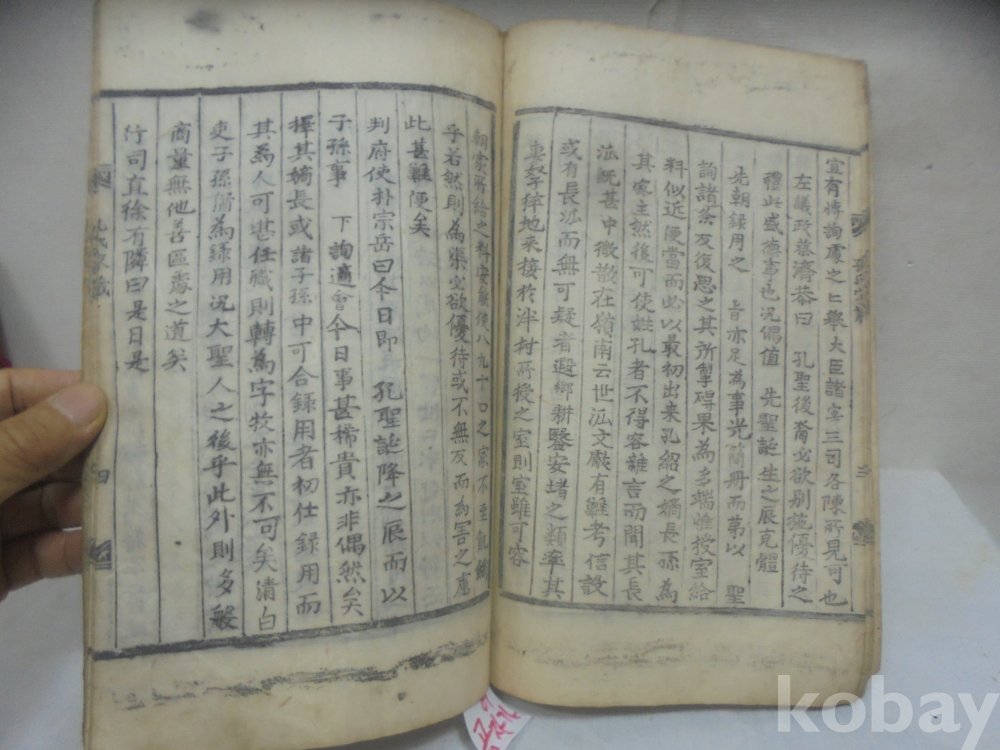 宜有博詢處之上舉大臣諸宰三司各陳所見可也
左議政蔡濟恭曰 孔聖後裔必欲別施優待之
禮此盛德事也況偶值 先聖誕生之辰克體
先朝錄用之 旨亦足為事光簡冊而第以 聖
詢諸条反復思之其所掣碍果為多端惟授室給
料似近便當而必以最初出來孔紹之嫡長孫為
其家主然後可使姓孔者不得容雜言而聞其長
派既甚中微散在嶺南云世派文蹟有難考信設
或有長派而無可疑者遐鄉耕鑿安堵之類率其
妻孥猝地來接於泮村所授之室則室雖可容
朝家所給之料安能使八九十口之家不至飢餓
乎若然則為渠必欲優待或不無反而為害之慮
此甚難便矣
判府使朴宗岳曰今日即 孔聖誕降之辰而以
子孫事 下詢適會今日事甚稀貴亦非偶然矣
擇其嫡長或諸子孫中可合錄用者初仕錄用而
其為人可堪任職則轉為字牧亦無不可矣清白
吏子孫猶為錄用況大聖人之後乎此外則多般
商量無他善區處之道矣
行司直徐有隣曰是日是
四
二
kobay